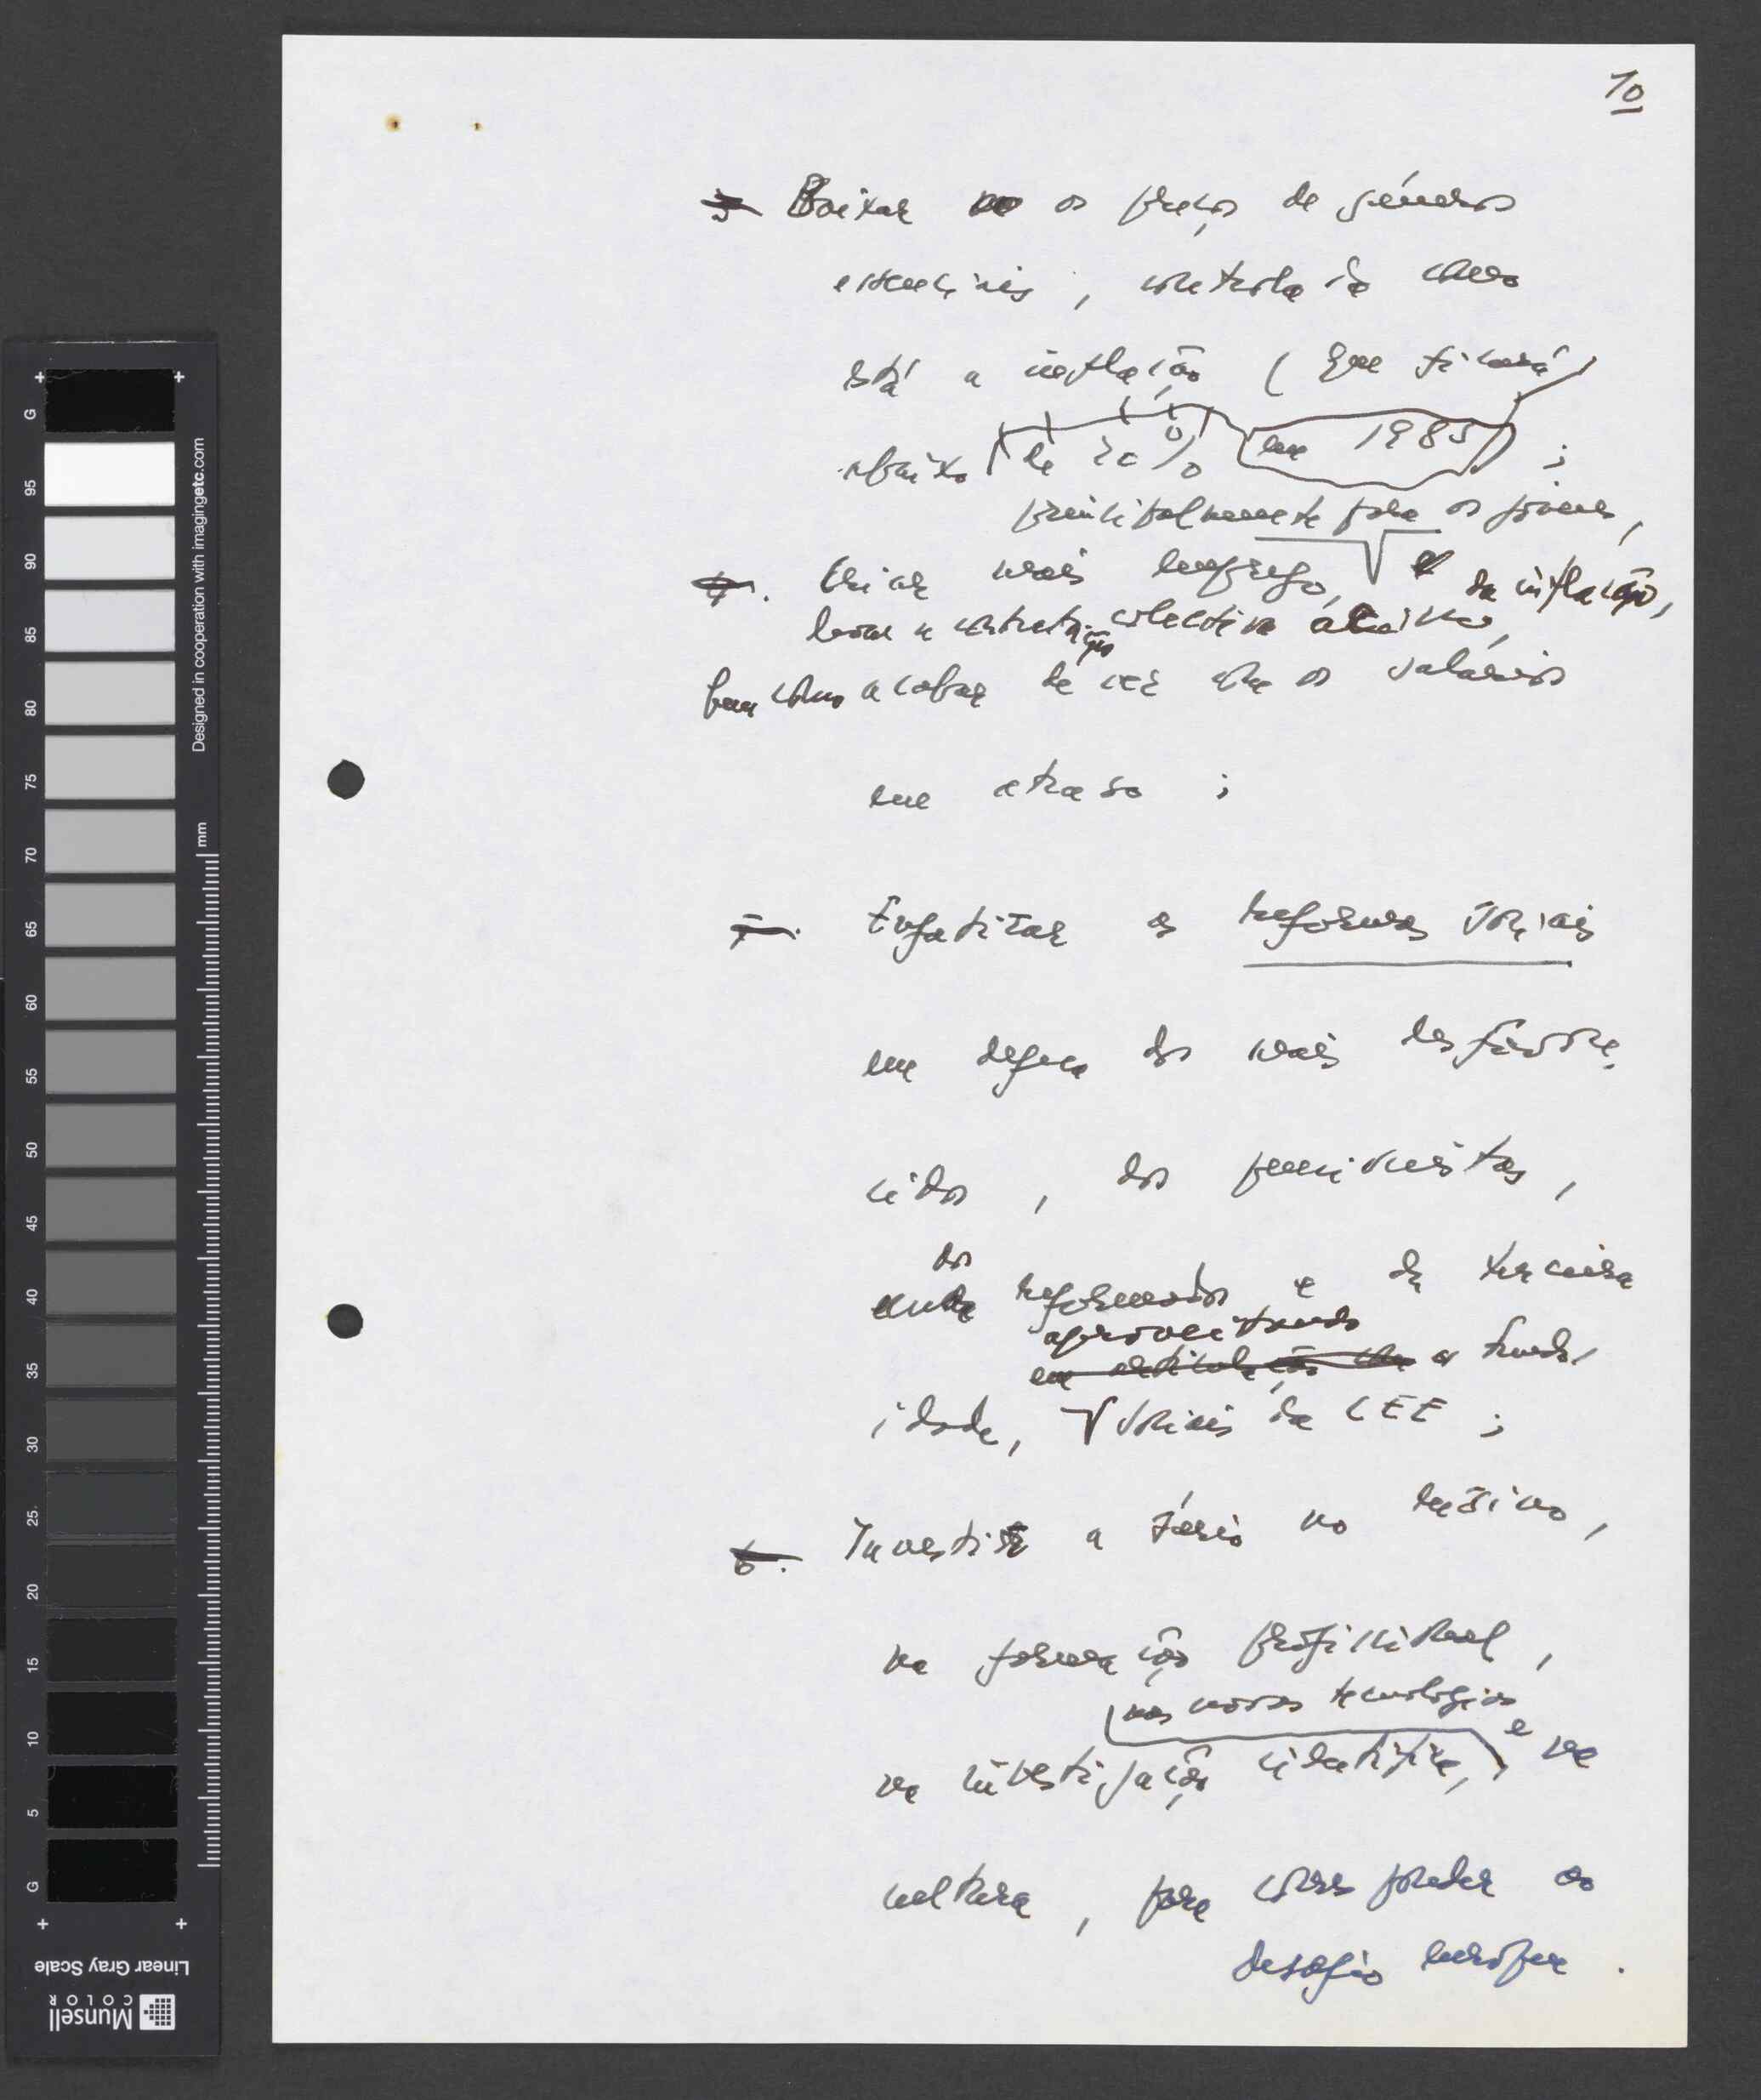 10
3. Baixar os preços de géneros
essenciais, controlada como
está a inflação (que ficará
abaixo de 20% em 1985);
principalmente para os jovens,
4. Criar mais emprego,
levar a contratação colectiva acima da inflação,
bem como acabar de vez com os salários
em atraso;
5. Enfatizar as reformas sociais
em defesa dos mais desfavore-
cidos, dos pensionistas,
dos reformados e da terceira
aproveitando
em articulação com os fundos
idade, sociais da CEE;
6. Investir a sério no ensino,
na formação profissional,
nas novas tecnologias
na investigação científica, e na
cultura, para corresponder ao
desafio europeu.
G 95 90 85 80 75 70 65 60 55 50 45 40 35 30 25 20 15 10 5 G
mm
Designed in cooperation with imagingetc.com
Linear Gray Scale
Munsell
COLOR